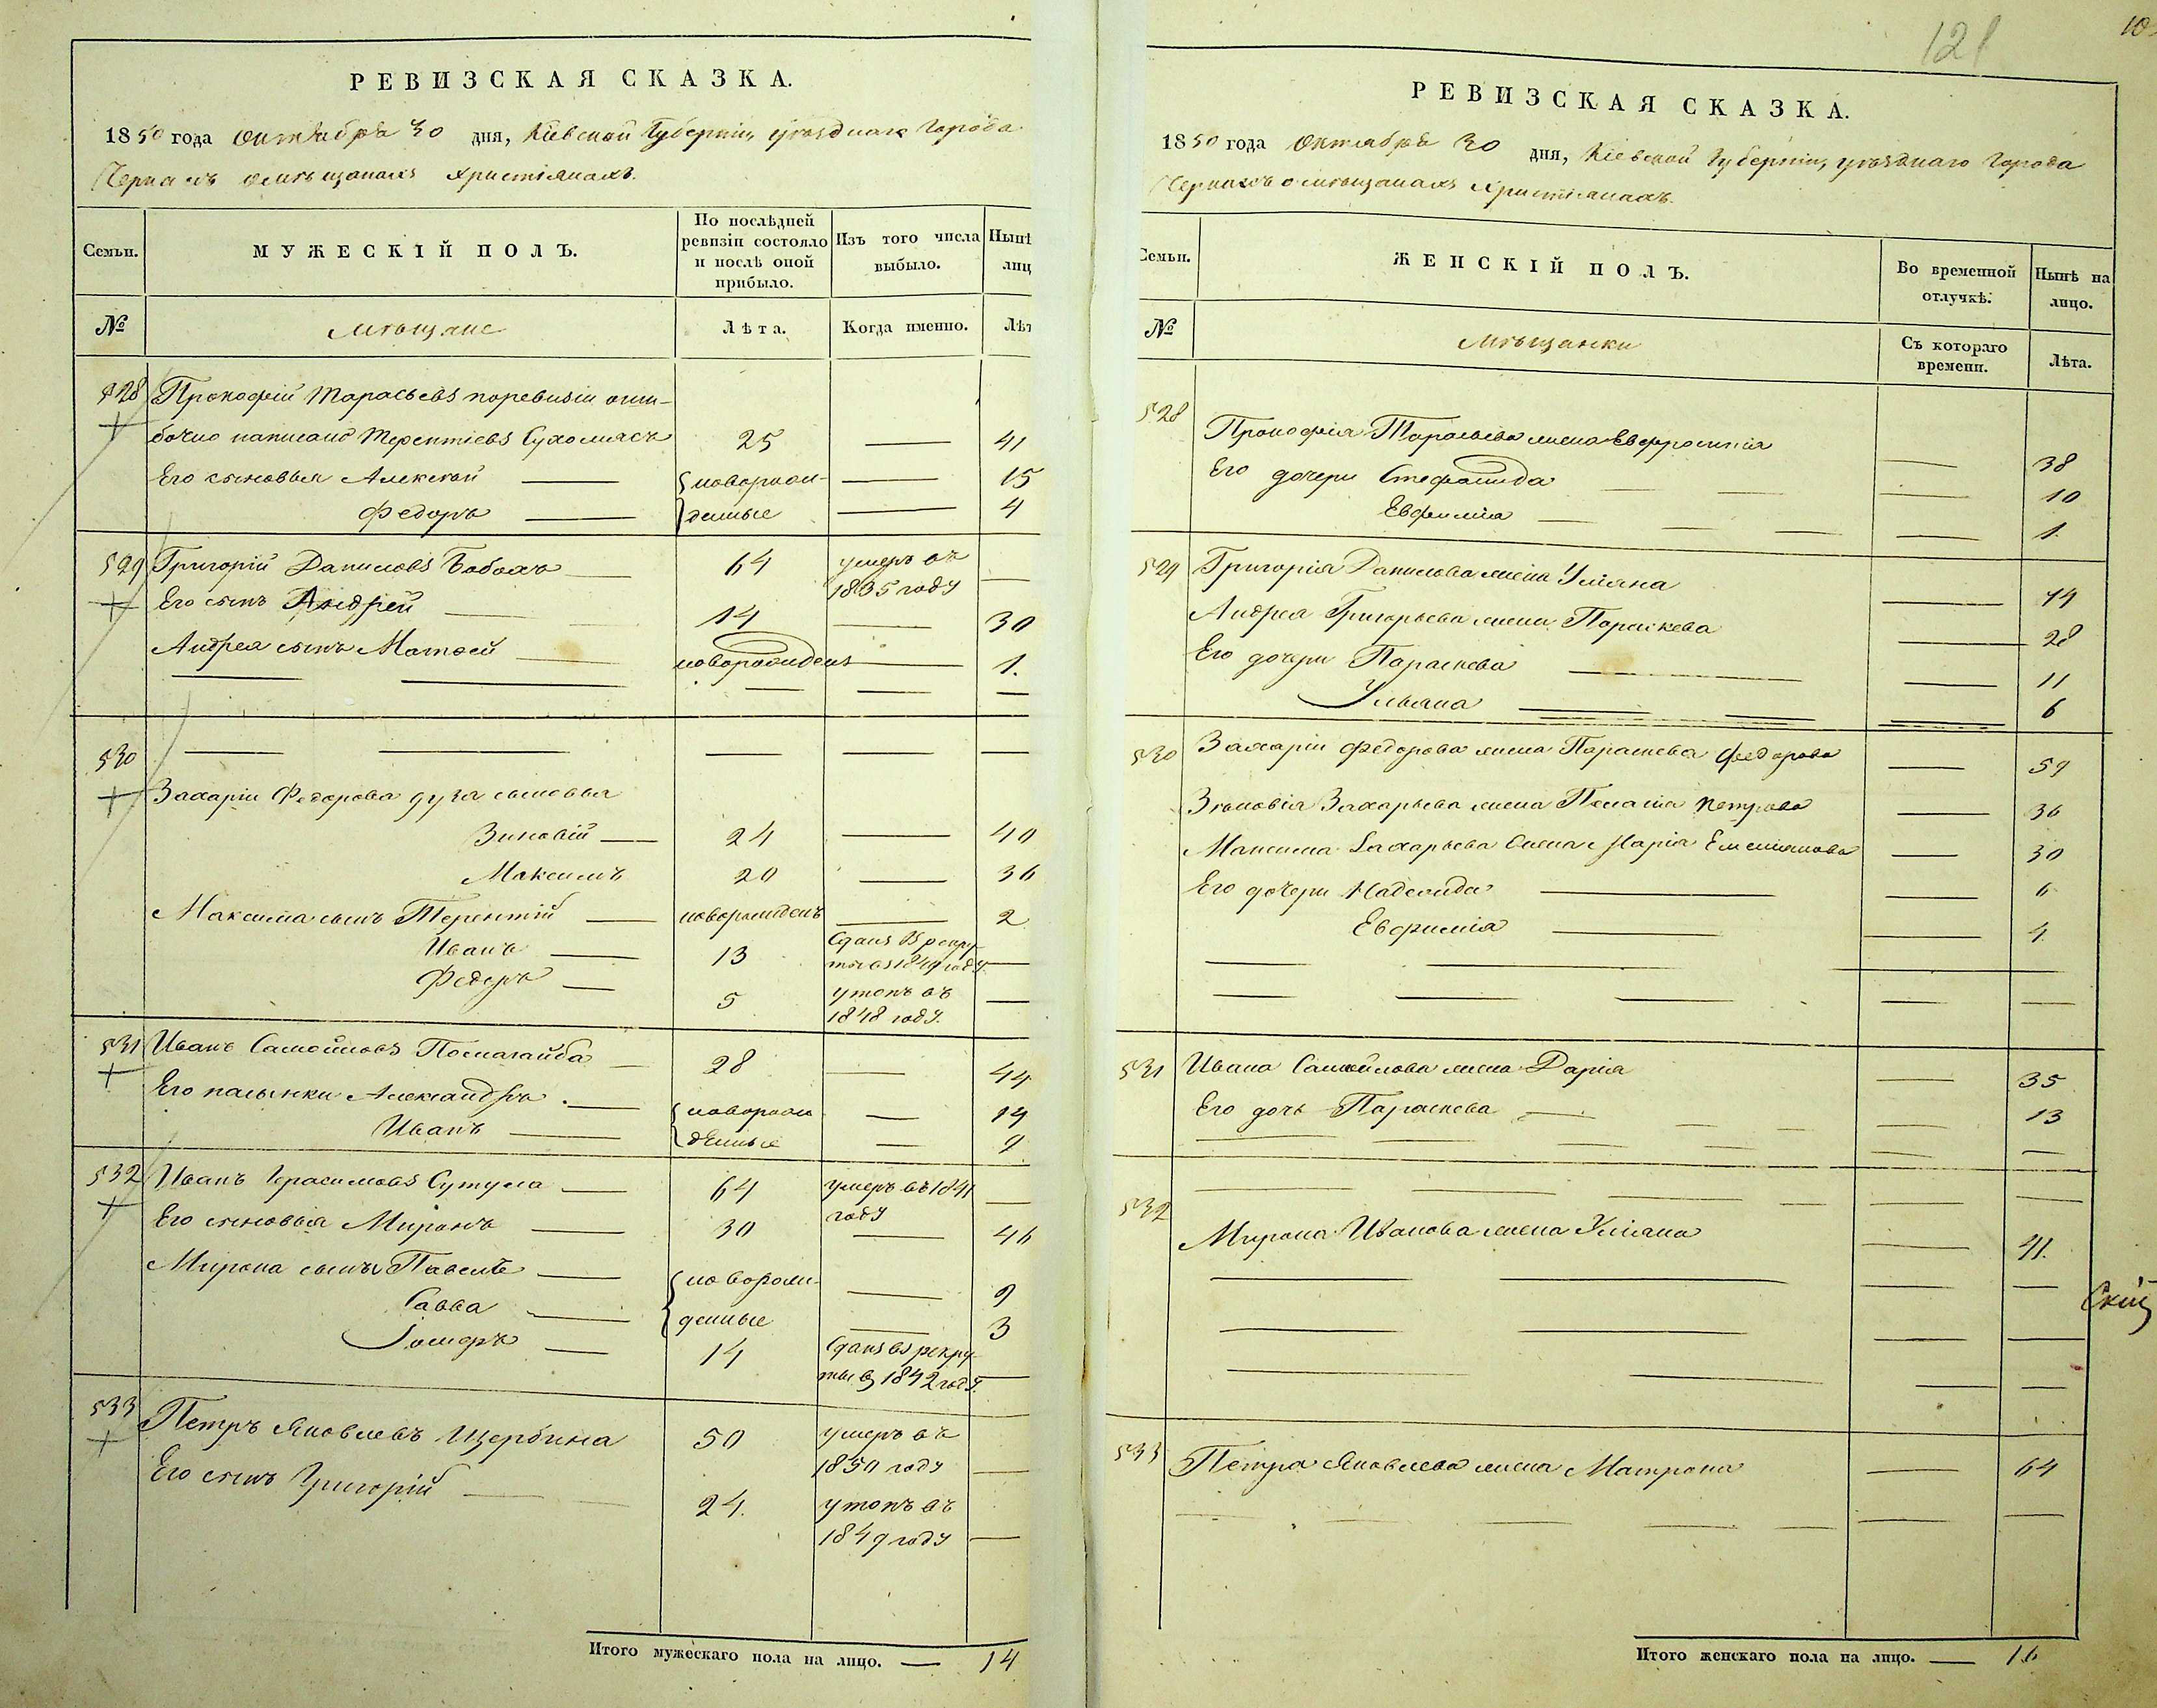 РЕВИЗСКАЯ СКАЗКА.
1850 года Октября 30 дня, Кіевской Губерніи, уѣзднаго Города
Черкасъ о мѣщанахъ христіянахъ.
Семьи.
МУЖЕСКІЙ ПОЛЪ.
По послѣдней
ревизіи состояло
и послѣ оной
прибыло.
Изъ того числа
выбыло.
Нынѣ
лиц
№
Мѣщане
Лѣта.
Когда именно.
Лѣт
528 Прокофій Тарасьевъ поревизіи оши-
бочно написанъ Терентіевъ Сухомлясъ 25 — 41
Его сыновья Алексѣй — новорож- — 15
Федоръ — денные — 4
529 Григорій Даниловъ Бабахъ — 64 умеръ въ
1835 году —
Его сынъ Андрей — 14 — 30
Андрея сынъ Матвей — новорожденъ — 1.
530
Захарія Федорова дуза сыновья
Зиновій — 24 — 40
Максимъ 20 — 36
Максима сынъ Терентій — новорожденъ — 2
Иванъ — 13 Сданъ въ рекру-
ты въ 1849 году —
Федоръ — 5 утопъ въ —
1848 году.
531 Иванъ Самойловъ Помагайба — 28 — 44
Его пасынки Александръ — новорож — 14
Иванъ — денные — 9
532 Иванъ Герасимовъ Сутула — 64 умеръ въ 1841 —
году
Его сыновья Миронъ — 30 — 46
Мирона сынъ Павелъ — новорож- — 9
Савва — денные — 3
14 Сданъ въ рекру-
ты въ 1842 году. —
533 Петръ Яковлевъ Щербина 50 умеръ въ
1850 году —
Его сынъ Григорій — 24. утопъ въ
1849 году —
Итого мужескаго пола на лицо. — 14
121
10
РЕВИЗСКАЯ СКАЗКА.
1850 года Октября 30 дня, Кіевской Губерніи, уѣзднаго Города
Черкасъ о мѣщанахъ Христіянахъ.
Семьи.
ЖЕНСКІЙ ПОЛЪ.
Во временной
отлучкѣ.
Нынѣ на
лицо.
№
Мѣщанки
Съ котораго
времени.
Лѣта.
528 Прокофія Тарасьева жена Евфросинія — 38
Его дочери Стефанида — 10
Евфимія — 1.
529 Григорія Данилова жена Уліяна — 74
Андрея Григорьева жена Параскева — 28
Его дочери Параскева — 11
Ульяна — 6
530 Захарія Федорова жена Параскева Федорова — 59
Зѣновія Захарьева жена Пелагія Петрова — 36
Максима Захарьева жена Марія Емеліянова — 30
Его дочери — 6
Евфимія — 4.
531 Ивана Самойлова жена Дарія — 35
Его дочь Параскева — 13
532
Мирона Иванова жена Уліяна — 41.
533 Петра Яковлева жена Матрона — 64
Итого женскаго пола на лицо. — 16